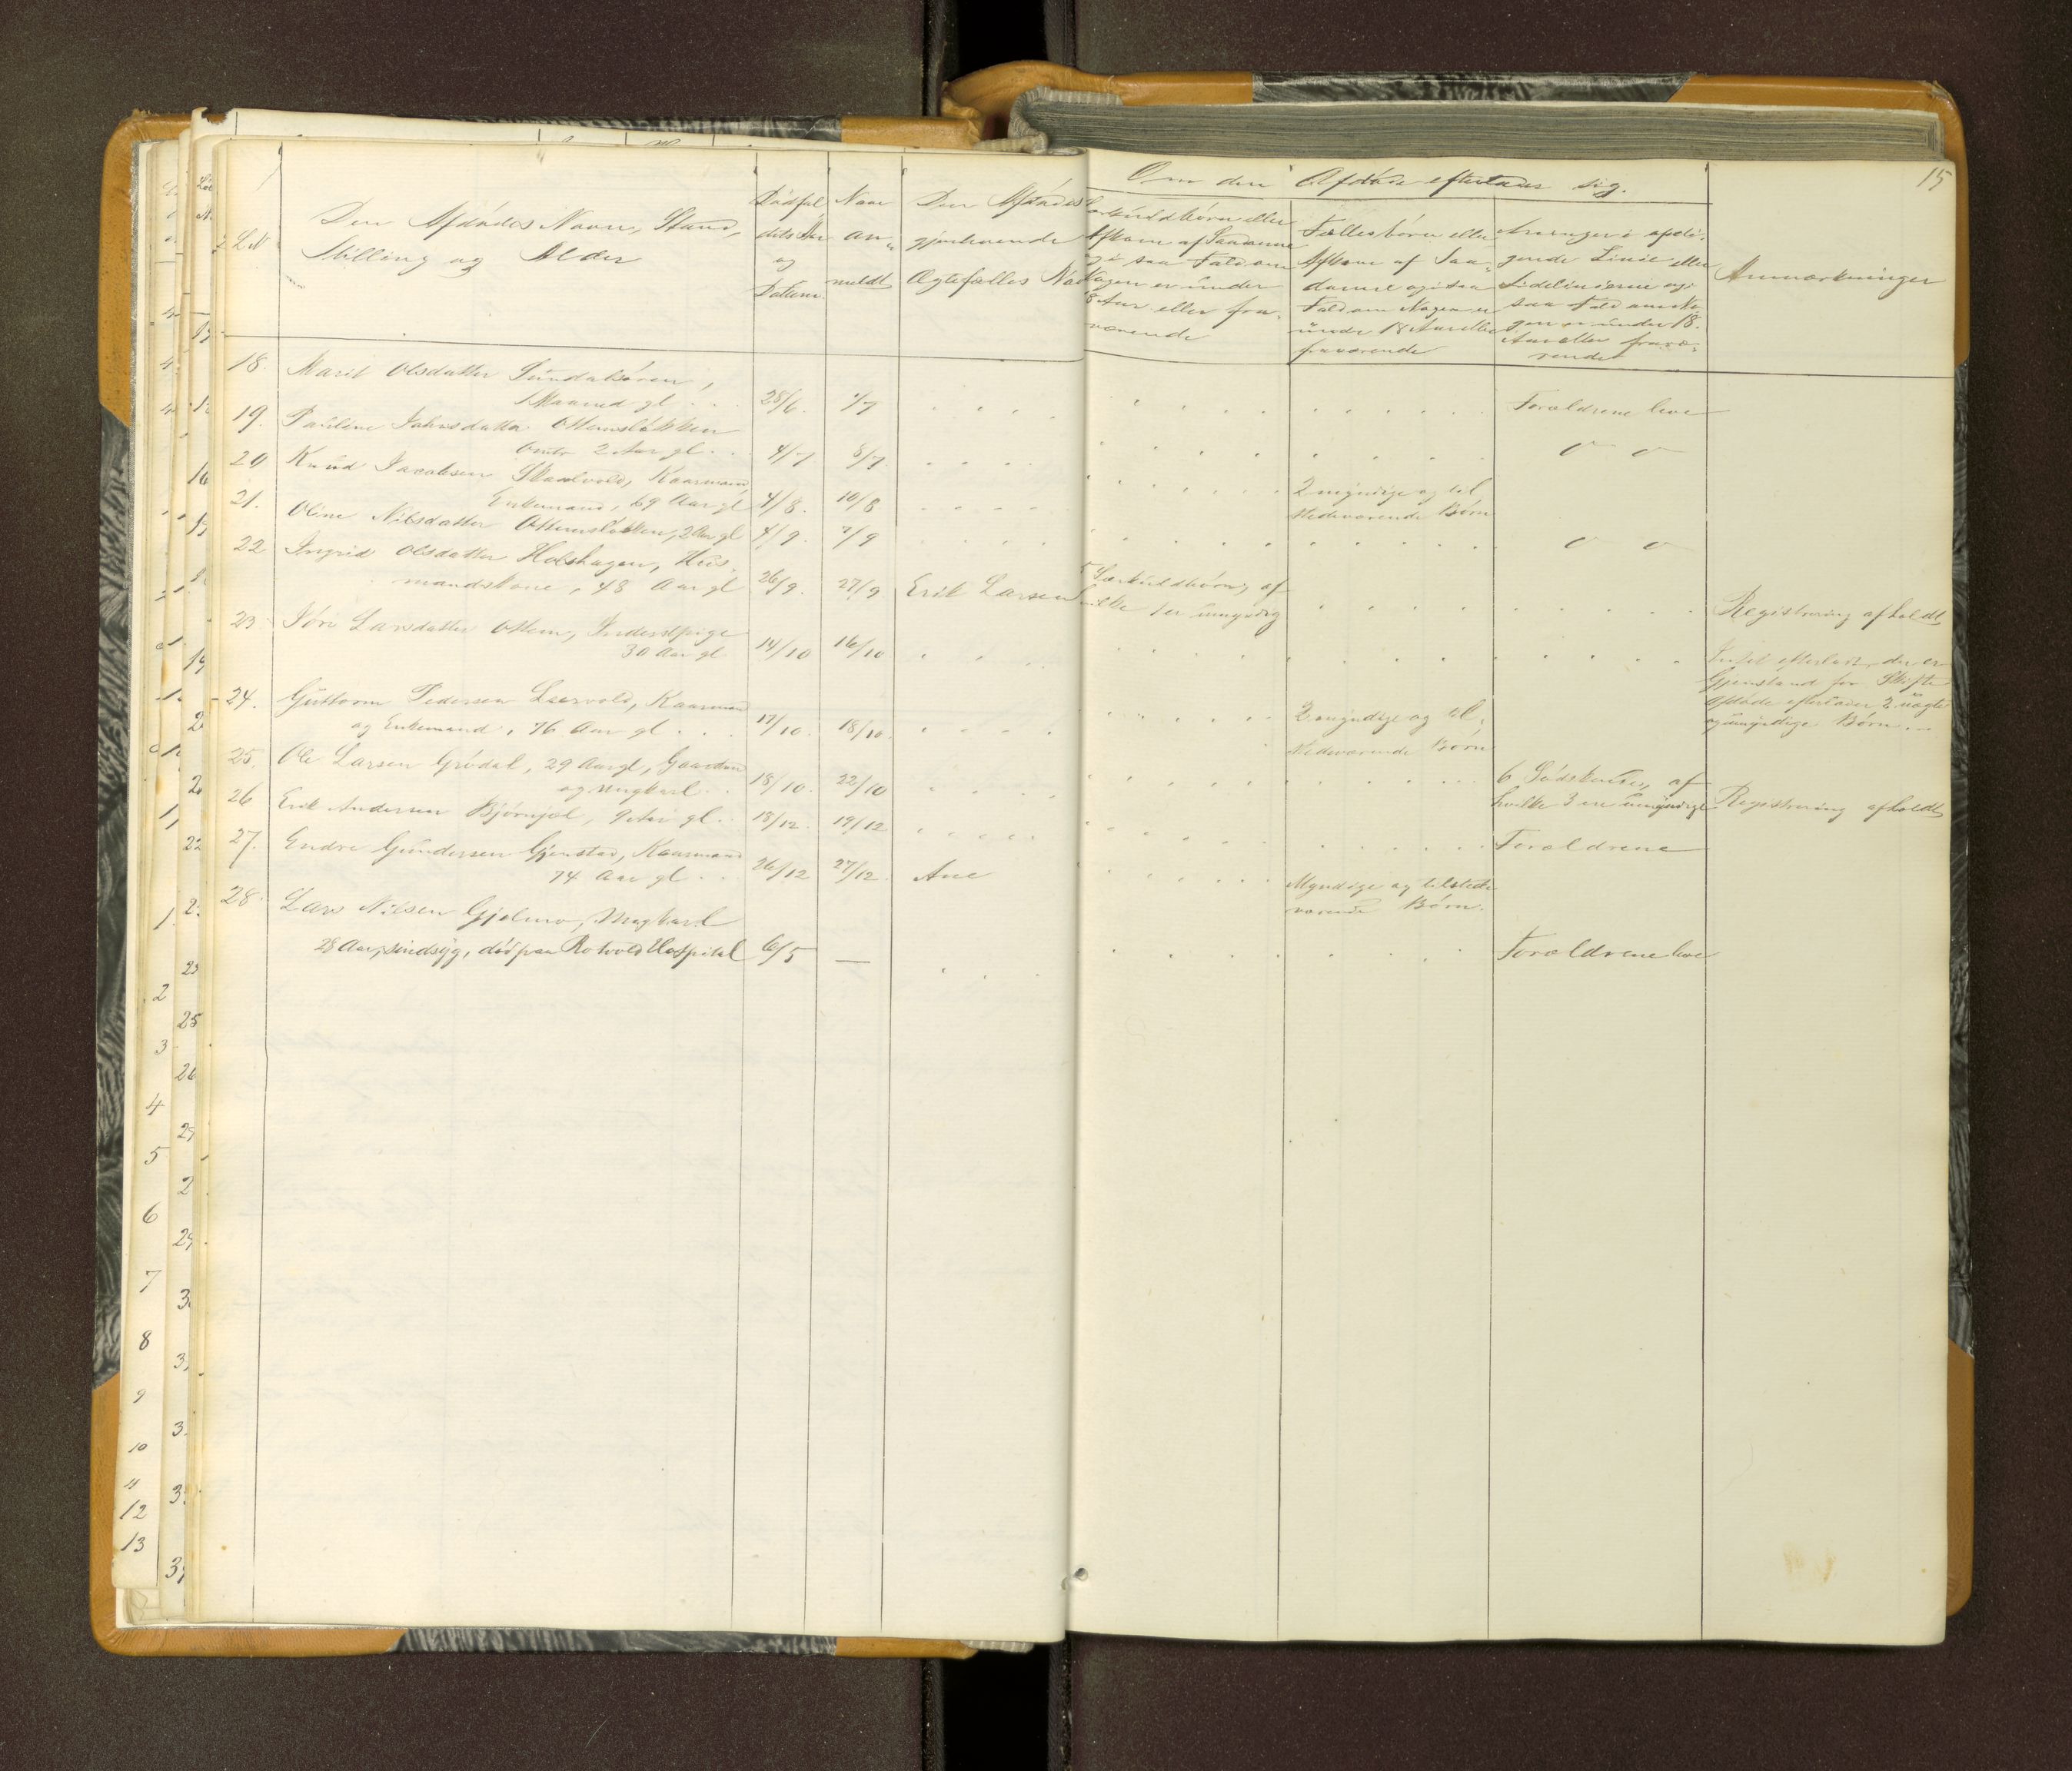 15
Om den Afdøde efterlader sig.
L N
Den Afdødes Navn, Stand,
Stilling og Alder
Dødsfal
dets Aar
og
Datum
Naar
an-
meldt
Den Afdødes
gjenlevende
Ægtefælles Nav
Særkuldbørn eller
Afkom af Saadanne
og i saa Fald om
Nogen er under
18 Aar eller fra-
værende
Fællesbørn eller
Afkom af Saa-
danne og i saa
Fald om Nogen er
under 18 Aar eller
fraværende
Arvinger i opsti-
gende Linie eller
Sidelinierne og i
saa Fald om No-
gen er under 18
Aar eller fravæ-
rende
Anmærkninger
18. Marit Olsdatter Sundalsøren,
1 Maaned gl . . 28/6. 1/7 Forældrene leve
19. Pauline Johnsdatter Ottemsløkken
omtr 2 Aar gl . . 4/7 8/7. " "
20 Knud Jacobsen Skaalvold, Kaarmand,
Enkemand, 69 Aar gl 4/8. 10/8 2 myndige og til
stedeværende Børn
21. Oline Nilsdatter Ottemsløkken, 2 Aar gl 4/9. 7/9 " "
22 Ingrid Olsdatter Holshagen, Hus-
mandskone, 48 Aar gl 26/9. 27/9 Erik Larsen 5 Særkuldbørn, af
hvilke 1 er umyndig Registrering afholdt
23. Jøri Larsdatter Ottem, Inderstpige
30 Aar gl 14/10 16/10 Intet efterladt, der er
Gjenstand for Skifte
Afdøde efterlader 2 uægte
og umyndige Børn . .
24. Guttorm Pedersen Leervold, Kaarmand
og Enkemand, 76 Aar gl . . . 17/10. 18/10 2 myndige og til-
stedeværende Børn
25. Ole Larsen Grødal, 29 Aar gl, Gaardm
og Ungkarl . . 18/10. 22/10 6 Sødskende, af
hvilke 3 ere umyndige Registrering afholdt
26 Erik Andersen Bjørnjel, 9 Aar gl . . 18/12. 19/12 Forældrene
27. Endre Gundersen Gjenstad, Kaarmand
74 Aar gl . . . 26/12 27/12. Ane Myndige og tilstede
værende Børn.
28. Lars Nilsen Gjelmo, Ungkarl
28 Aar, sindsyg, død paa Rotvold Hospital 6/5 — Forældrene leve